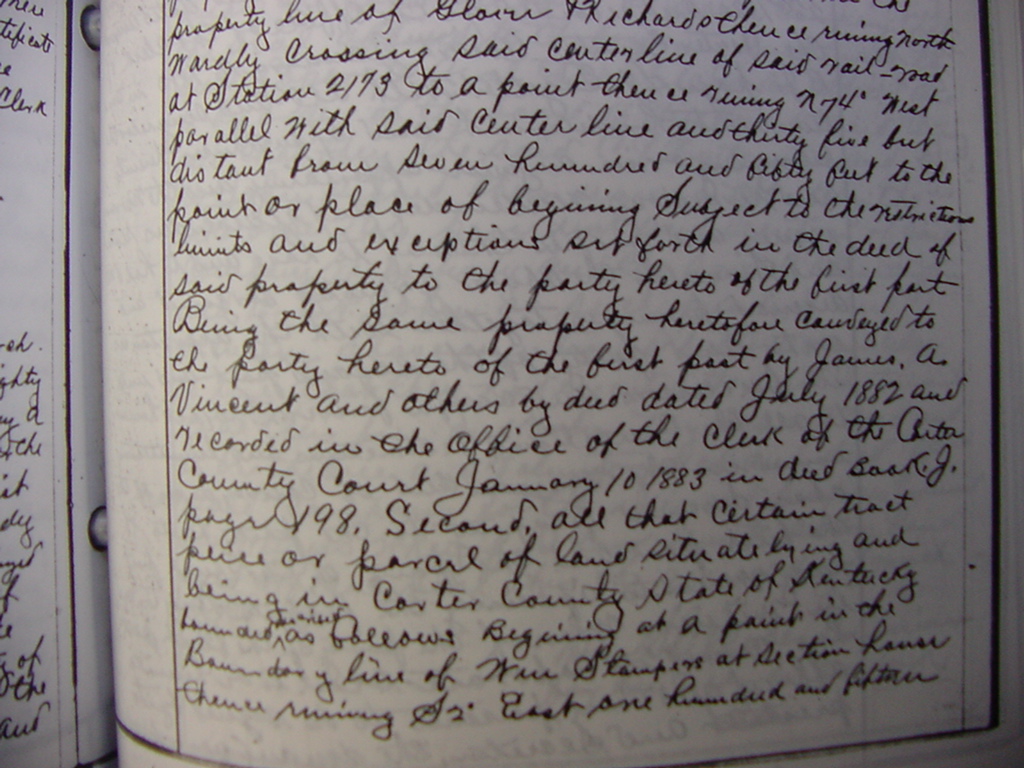 the
property line of Glover & Richards thence runing north
wardly crossing said center line of said rail-road
at Station 2173 to a point thence runing N 74° West
parallel with said center line and thirty five feet
distant from seven hundred and fifty feet to the
point or place of begining Subject to the restrictions
limits and exceptions set forth in the deed of
said property to the party hereto of the first part
Being the same property heretofore conveyed to
the party hereto of the first part by James. A.
Vincent and others by deed dated July 1882 and
recorded in the Office of the Clerk of the Carter
County Court January 10 1883 in deed Book J.
page 198. Second, all that certain tract
peice or parcel of land situate lying and
being in Carter County State of Kentucky
bounded as follows Begining at a point in the
Boundary line of Wm Stampers at section house
thence runing S 2° East one hundred and fifteen
tificate
Clerk
ch.
ighty
the
of
the
and